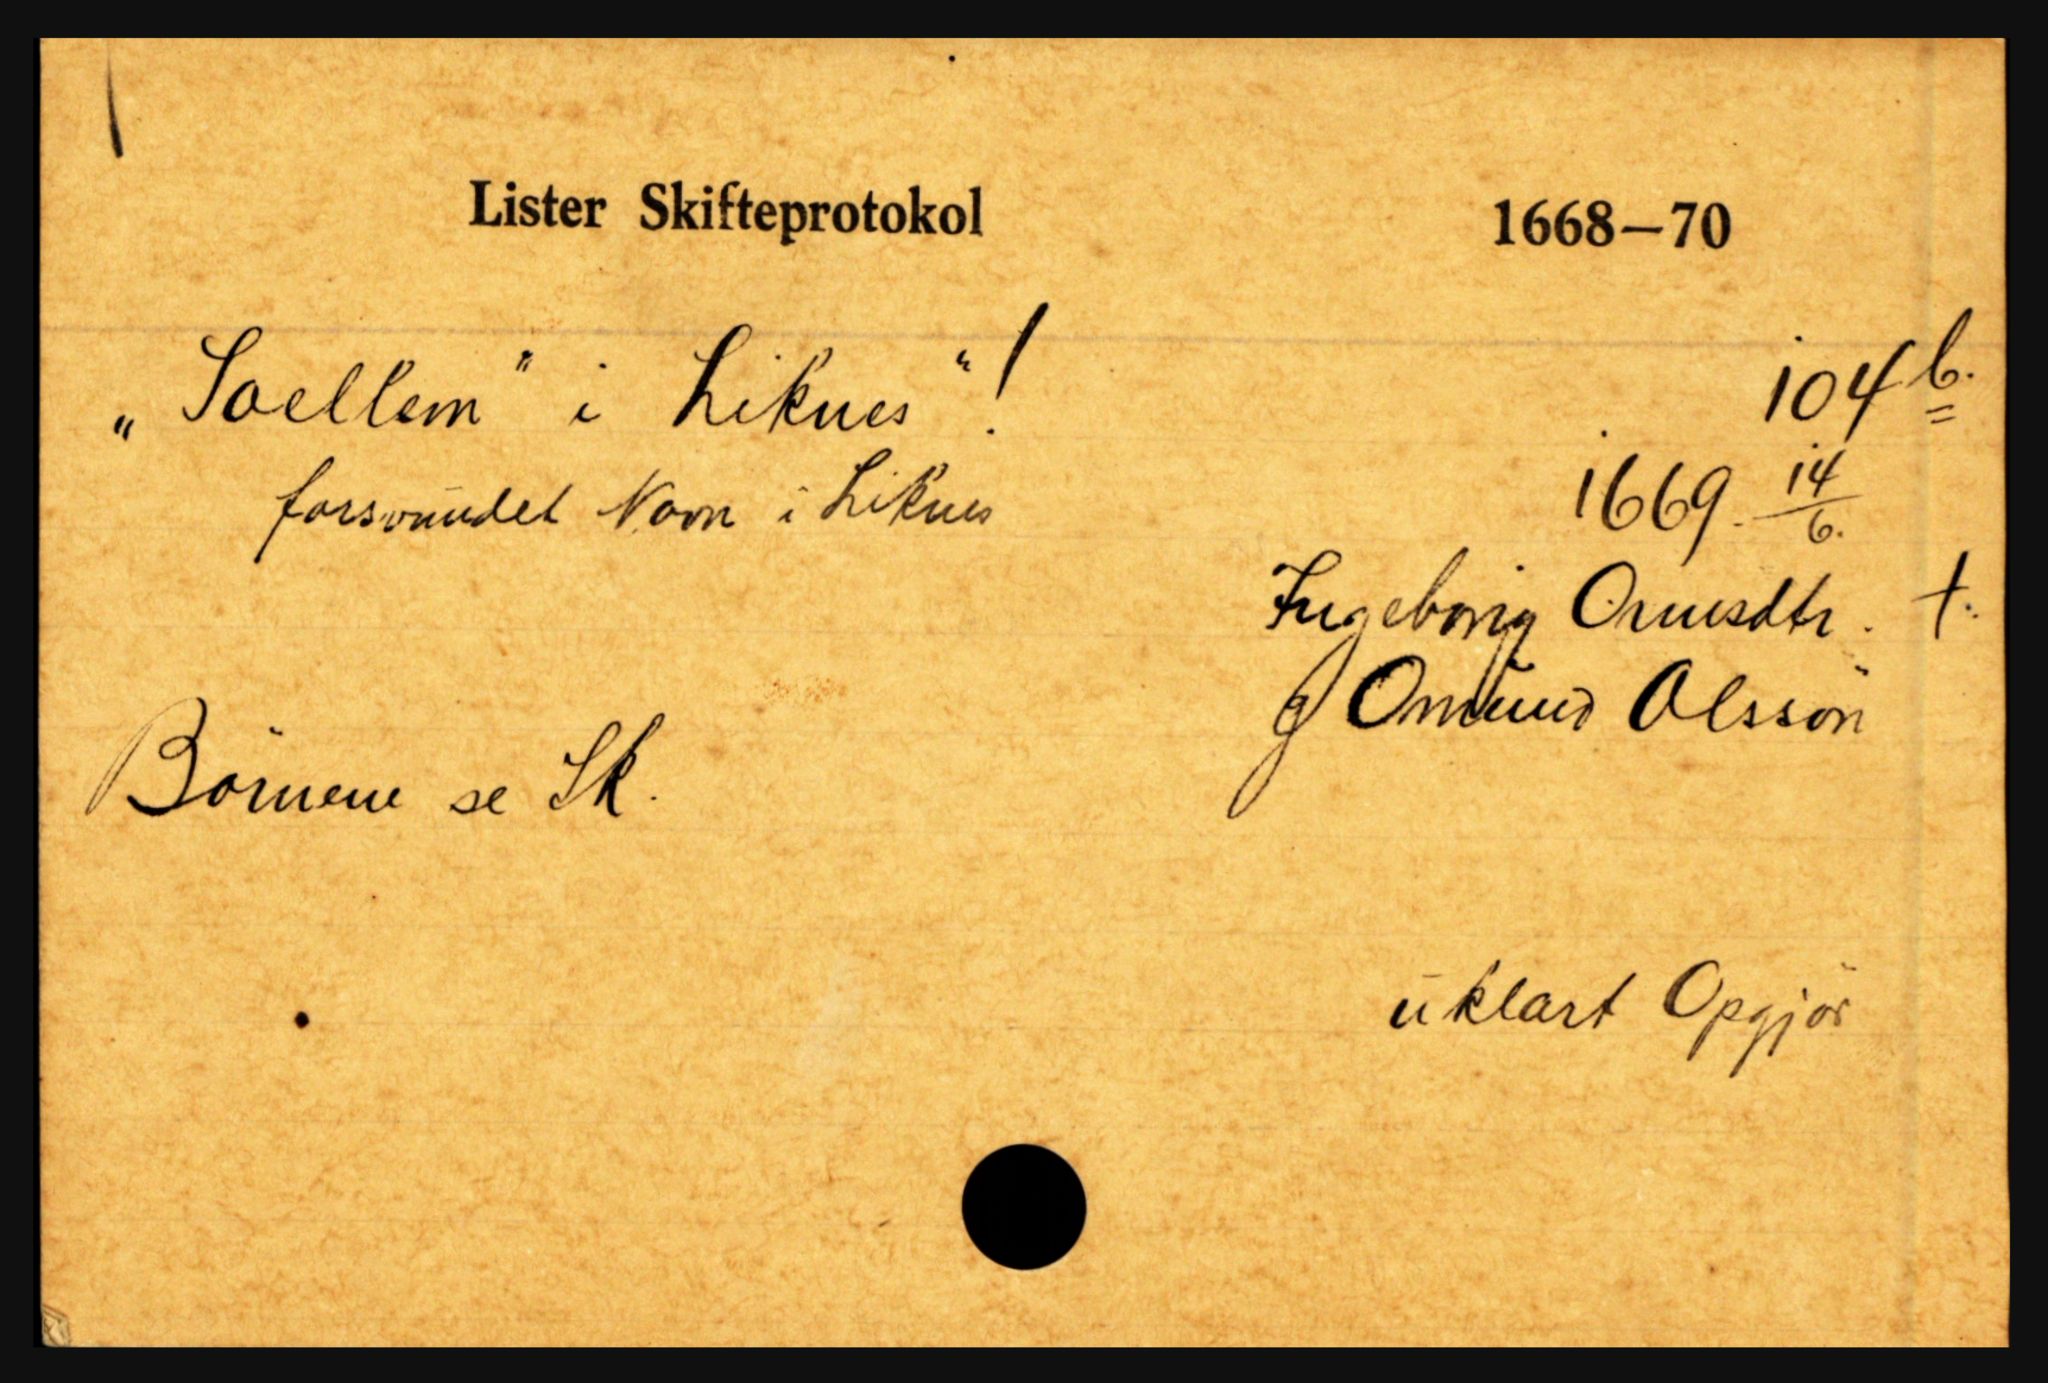 Lister Skifteprotokol 1668—70
„Soellem" i Liknes"! 104 b.
forsvundet Navn i Liknes 1669. 14/6.
Ingeborg Ormsdtr. †.
g Omund Olssön
Börnene se Sk.
uklart Opgjör